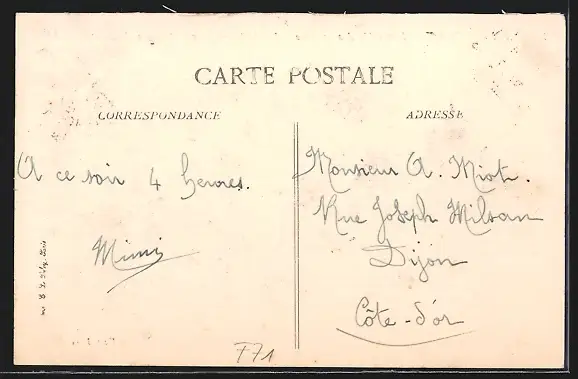 CARTE POSTALE
CORRESPONDANCE
ADRESSE
A ce soir 4 heures.
Mimi
Monsieur A. Miot.
Rue Joseph Milsan
Dijon
Côte-d'or
771